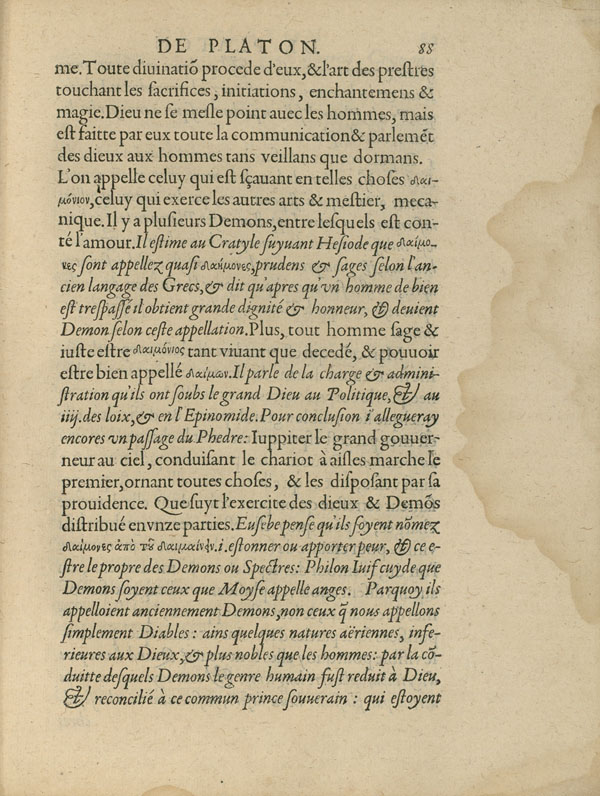 DE PLATON. 88
me. Toute diuinatiõ procede d'eux, & l'art des prestres
touchant les sacrifices, initiations, enchantemens &
magie. Dieu ne se mesle point auec les hommes, mais
est faitte par eux toute la communication & parlemẽt
des dieux aux hommes tans veillans que dormans.
L'on appelle celuy qui est sçauant en telles choses δαι-
μόνιον, celuy qui exerce les autres arts & mestier, meca-
nique. Il y a plusieurs Demons, entre lesquels est con-
té l'amour. Il estime au Cratyle suyuant Hesiode que δαίμο-
νες sont appellez quasi δαήμονες, prudens & sages selon l'an-
cien langage des Grecs, & dit qu'apres qu'vn homme de bien
est trespassé il obtient grande dignité & honneur, & deuient
Demon selon ceste appellation. Plus, tout homme sage &
iuste estre δαιμόνιος tant viuant que decedé, & pouuoir
estre bien appellé δαίμων. Il parle de la charge & admini-
stration qu'ils ont soubs le grand Dieu au Politique, & au
iiij. des loix, & en l'Epinomide. Pour conclusion i'allegueray
encores vn passage du Phedre: Iuppiter le grand gouuer-
neur au ciel, conduisant le chariot à aisles marche le
premier, ornant toutes choses, & les disposant par sa
prouidence. Que suyt l'exercite des dieux & Demõs
distribué en vnze parties. Eusebe pense qu'ils soyent nõmez
δαίμονες ἀπὸ τοῦ δαιμαίνειν. i. estonner ou apporter peur, & ce e-
stre le propre des Demons ou Spectres: Philon Iuif cuyde que
Demons soyent ceux que Moyse appelle anges. Parquoy ils
appelloient anciennement Demons, non ceux q̃ nous appellons
simplement Diables: ains quelques natures aëriennes, infe-
rieures aux Dieux, & plus nobles que les hommes: par la cõ-
duitte desquels Demons le genre humain fust reduit à Dieu,
& reconcilié à ce commun prince souuerain: qui estoyent